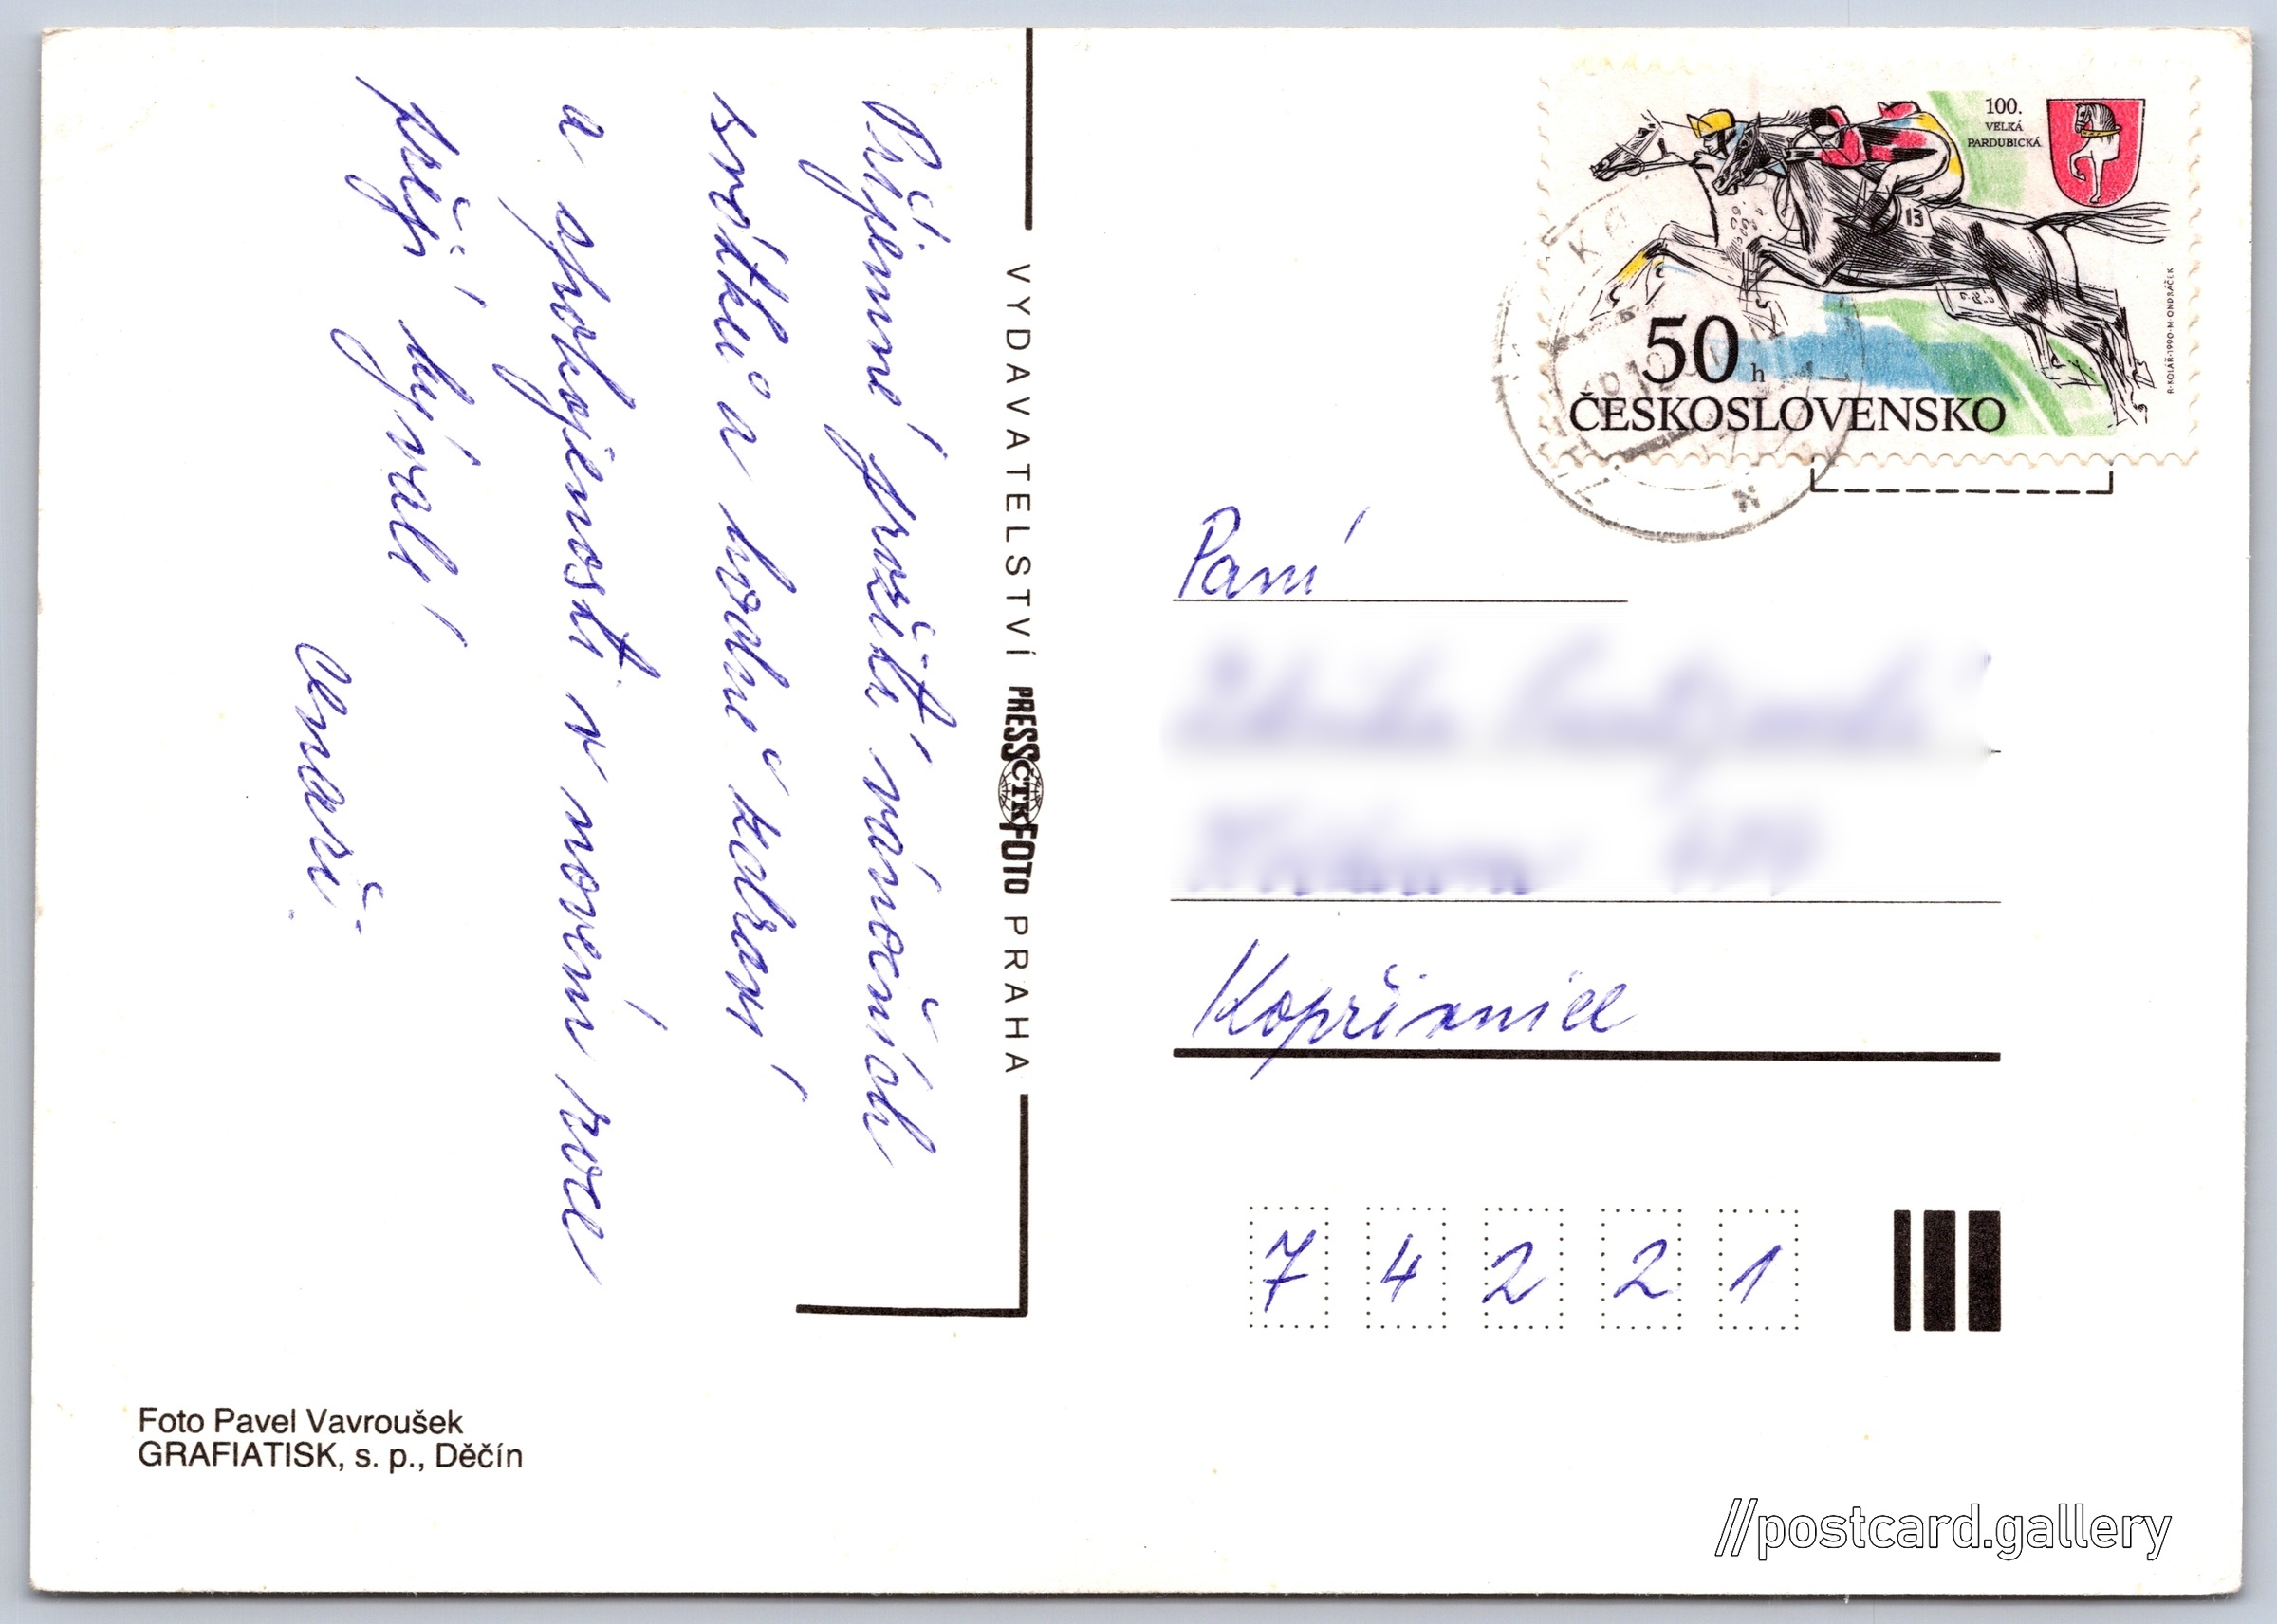 Příjemné prožití vánočních
svátků a hodně zdraví
a spokojenosti v novém roce
přejí
VYDAVATELSTVÍ PRESSFOTO PRAHA
ČTK
Foto Pavel Vavroušek
GRAFIATISK, s. p., Děčín
100.
VELKÁ
PARDUBICKÁ
13
50 h
ČESKOSLOVENSKO
R·KOLÁŘ·1990·M·ONDRÁČEK
Paní
Kopřivnice
7 4 2 2 1
//postcard.gallery